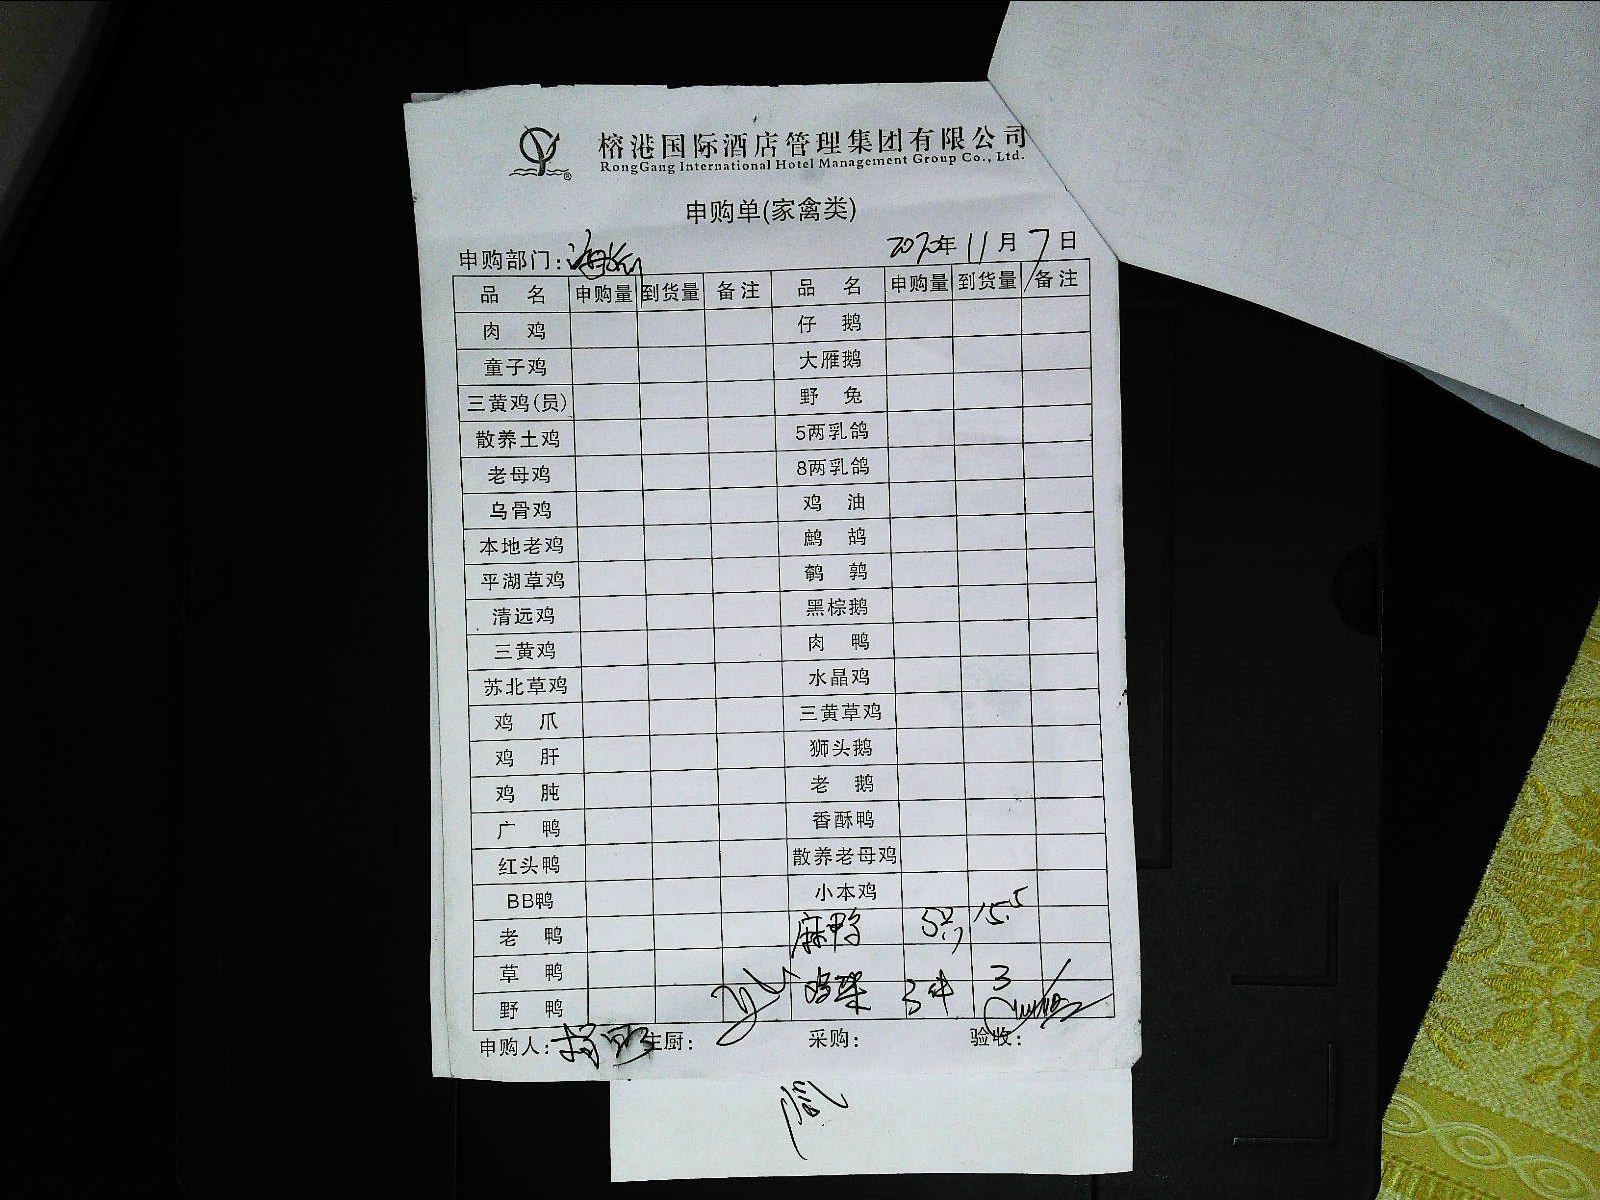 榕港国际酒店管理集团有限公司
RongGang International Hotel Management Group Co., Ltd.
申购单(家禽类)
申购部门: 2020年11月7日
品名 申购量 到货量 备注 品名 申购量 到货量 备注
肉鸡 仔鹅
童子鸡 大雁鹅
三黄鸡(员) 野兔
散养土鸡 5两乳鸽
老母鸡 8两乳鸽
乌骨鸡 鸡油
本地老鸡 鹧鸪
平湖草鸡 鹌鹑
清远鸡 黑棕鹅
三黄鸡 肉鸭
苏北草鸡 水晶鸡
鸡爪 三黄草鸡
鸡肝 狮头鹅
鸡肫 老鹅
广鸭 香酥鸭
红头鸭 散养老母鸡
BB鸭 小本鸡
老鸭 麻鸭 5只 15.5
草鸭
野鸭 3件 3
申购人: 主厨: 采购: 验收: